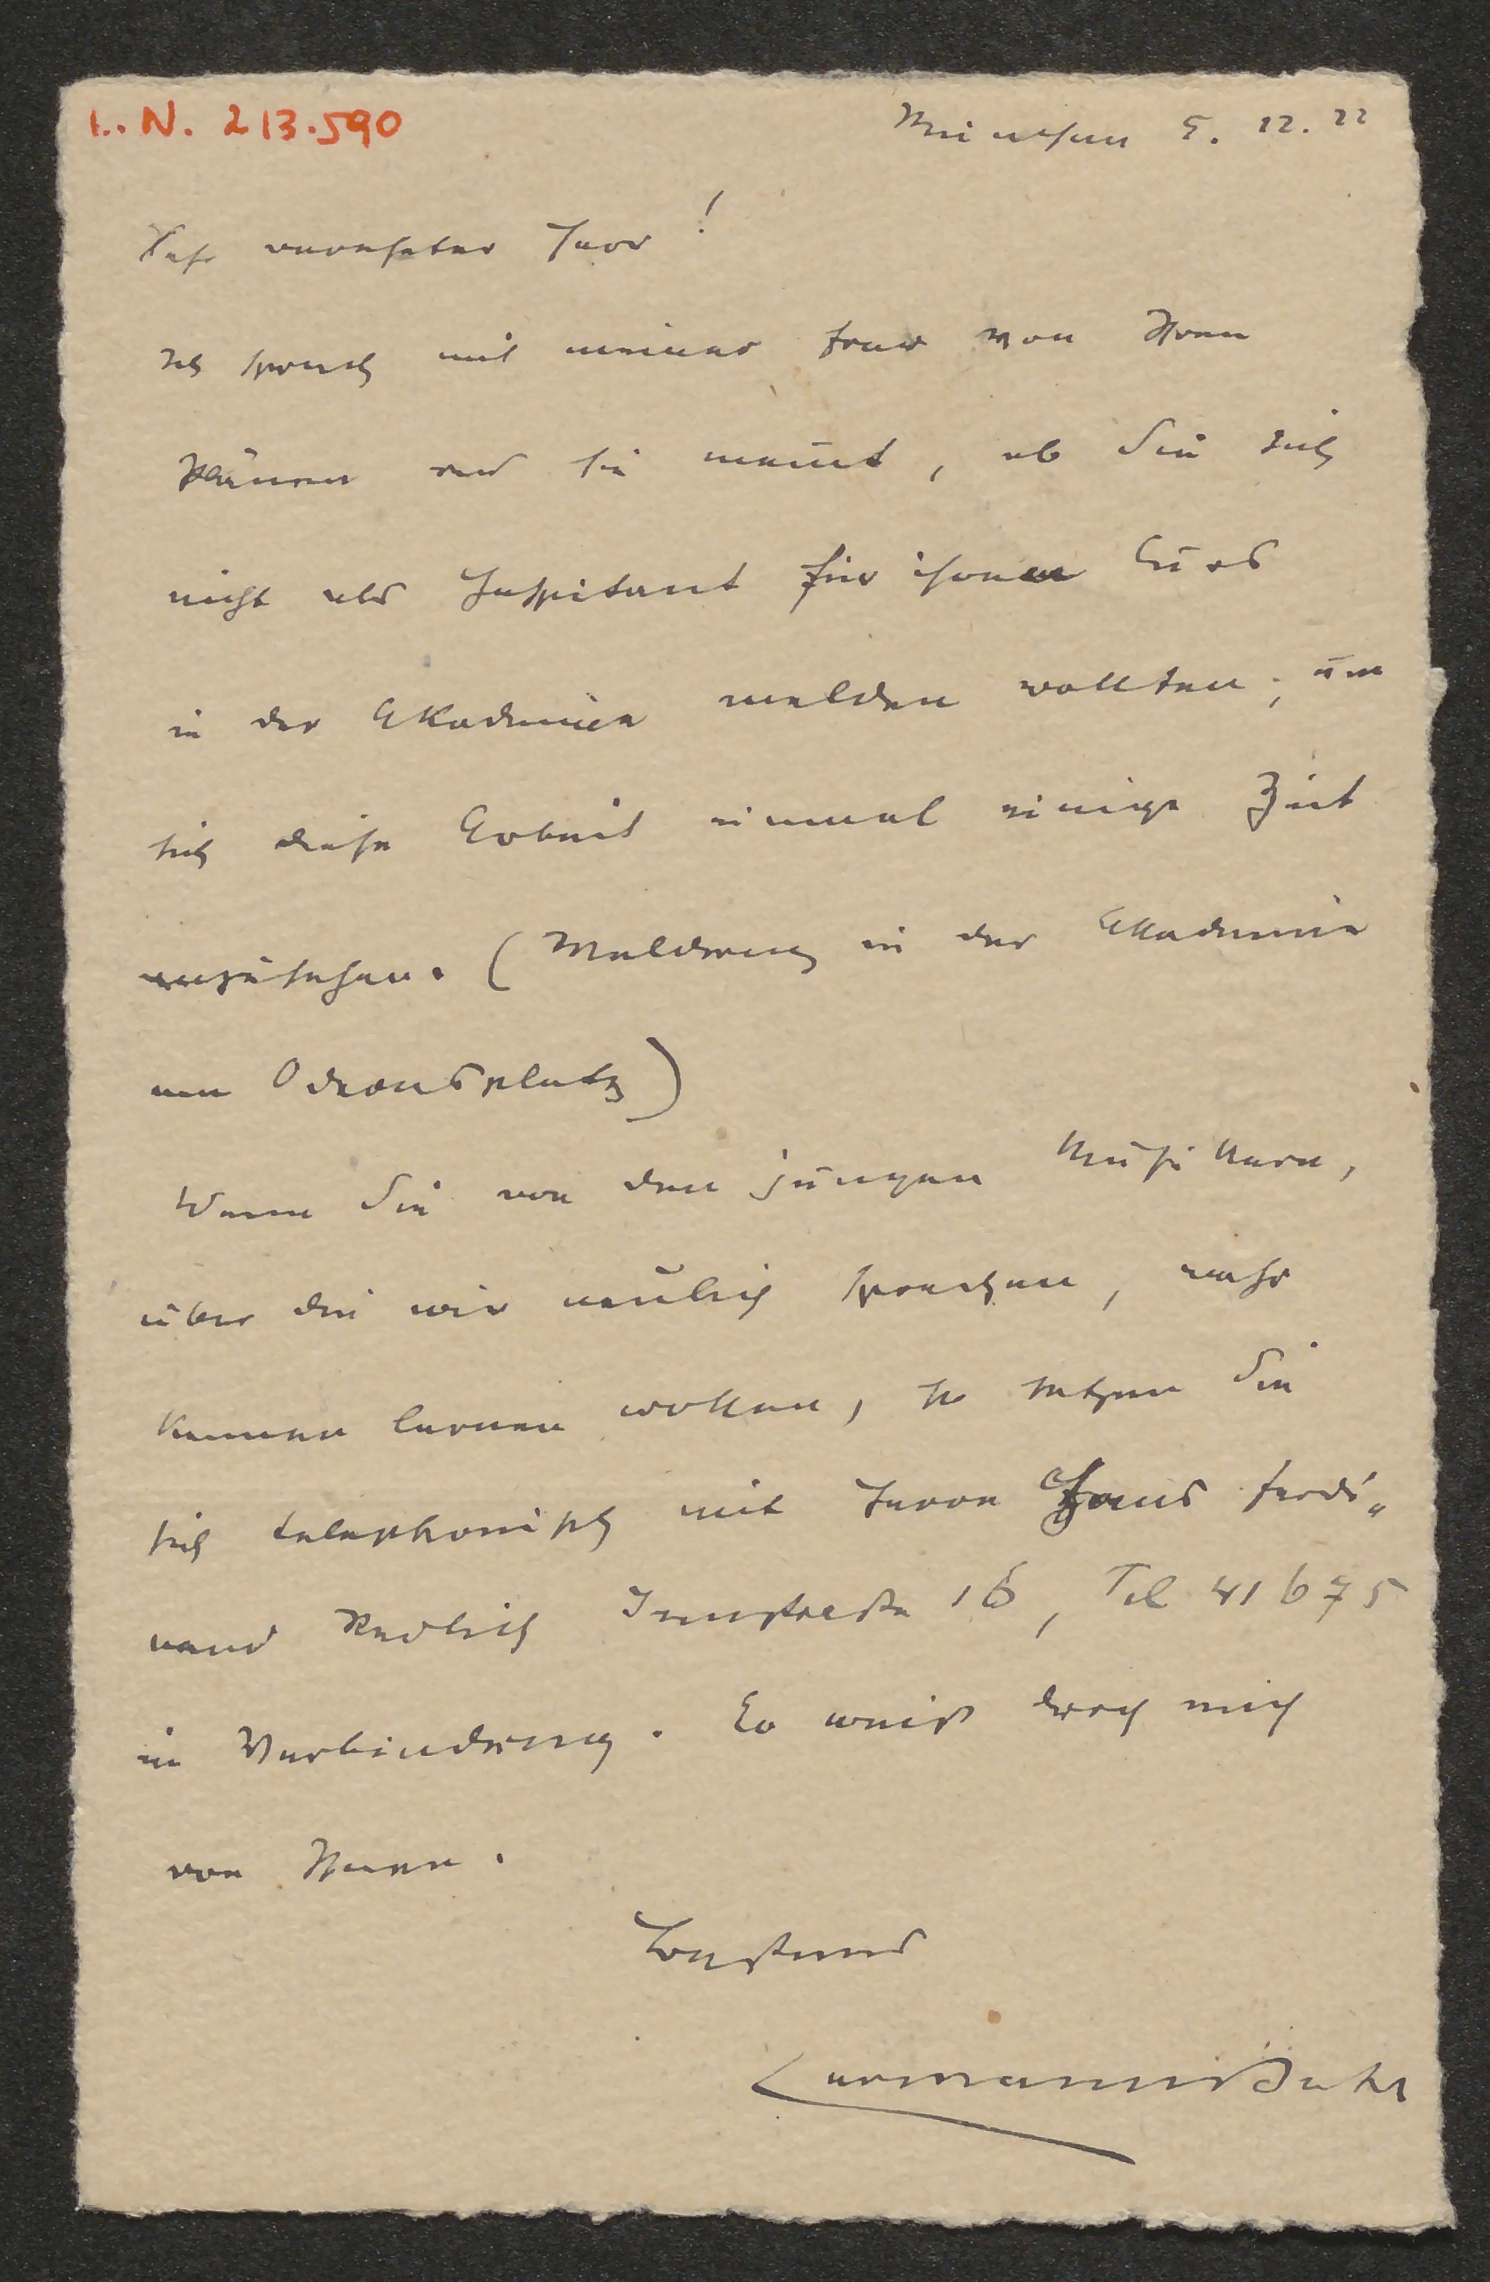 I. N. 213.590
München 5. 12. 22
Sehr verehrter Herr!
ich sprach mit meiner Frau von Ihren
Plänen und sie meint, ob Sie sich
nicht als Hospitant für ihren Curs
in der Akademie melden wollten, um
sich diese Arbeit einmal einige Zeit
anzusehen. (Meldung in der Akademie
am Odeonsplatz)
Wenn Sie von den jungen Musikern,
über die wir neulich sprachen, mehr
kennen lernen wollen, so setzen Sie
sich telephonisch mit Herrn Hans Ferdi„
nand Redlich Innstraße 16, Tel 41675
in Verbindung. Er weiß durch mich
von Ihnen.
Bestens
Hermann Bahr